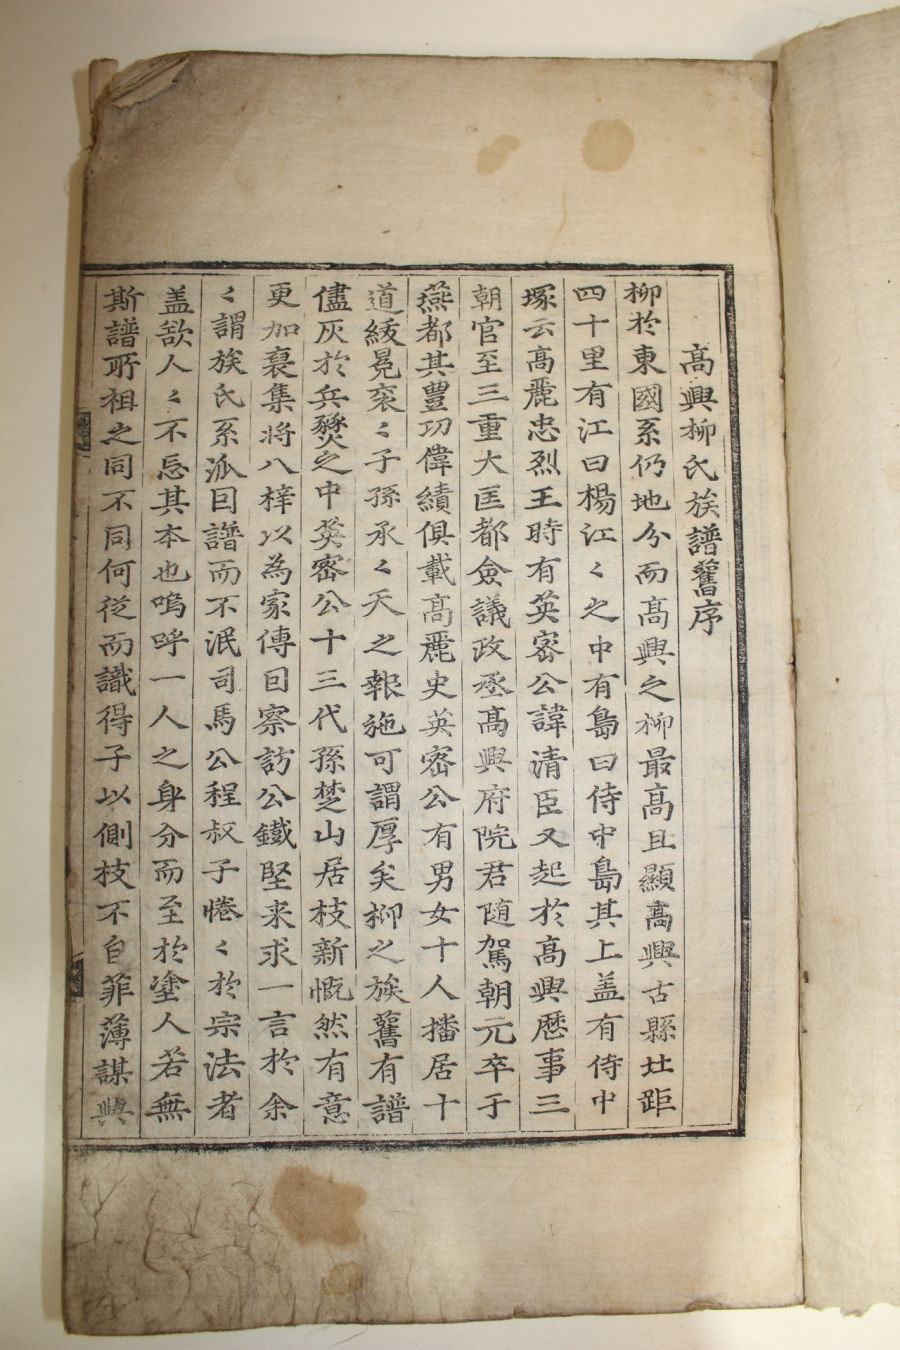 高興柳氏族譜舊序
柳於東國系仍地分而高興之柳最高且顯高興古縣壯距
四十里有江曰楊江〻之中有島曰侍中島其上盖有侍中
塚云高麗忠烈王時有英密公諱清臣又起於高興歷事三
朝官至三重大匡都僉議政丞高興府院君随駕朝元卒于
燕都其豊功偉績俱載高麗史英密公有男女十人播居十
道綾冕衮〻子孫承〻天之報施可謂厚矣柳之族舊有譜
儘灰於兵燹之中英密公十三代孫楚山居枝新慨然有意
更加裒集将八梓以為家傳囙察訪公鐵堅来求一言於余
〻謂族氏系泒囙譜而不泯司馬公程叔子惓〻於宗法者
盖欲人〻不忘其本也嗚呼一人之身分而至於塗人若無
斯譜所祖之同不同何從而識得子以側枝不自菲薄謀與